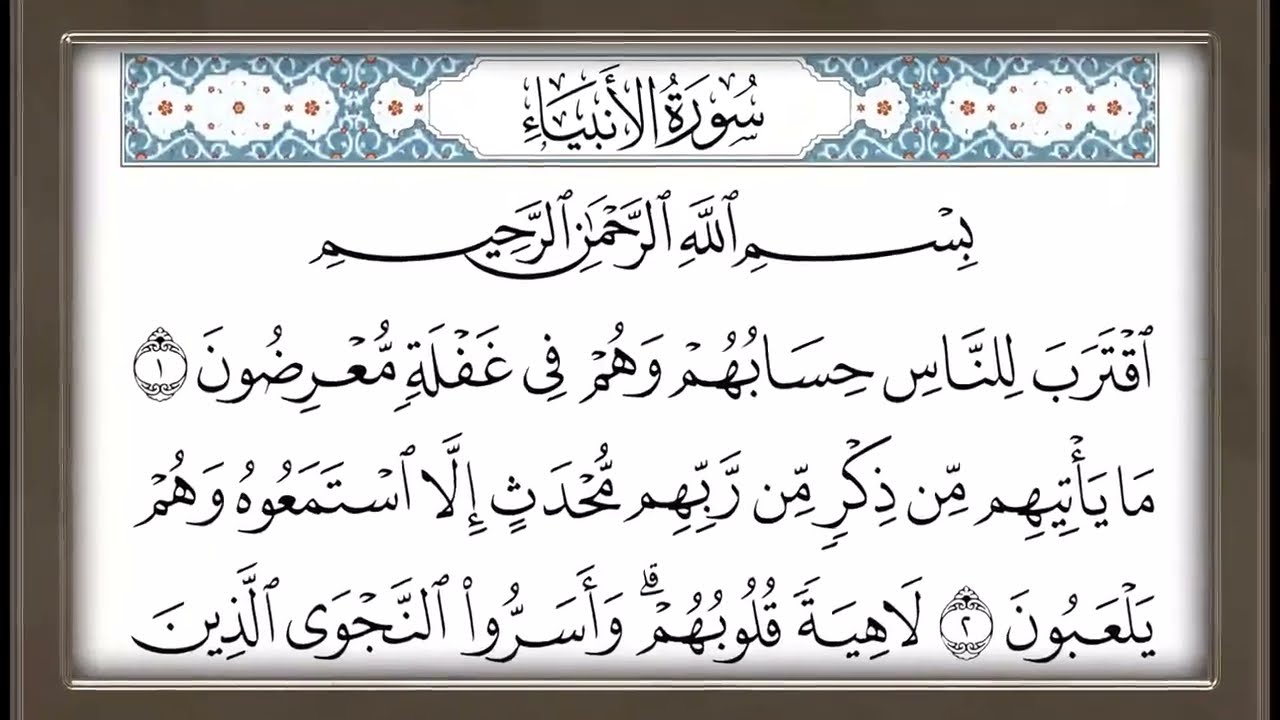 سُورَةُ الأَنبيَاء
بِسْمِ ٱللَّهِ ٱلرَّحْمَٰنِ ٱلرَّحِيمِ
ٱقْتَرَبَ لِلنَّاسِ حِسَابُهُمْ وَهُمْ فِى غَفْلَةٍ مُّعْرِضُونَ ١
مَا يَأْتِيهِم مِّن ذِكْرٍ مِّن رَّبِّهِم مُّحْدَثٍ إِلَّا ٱسْتَمَعُوهُ وَهُمْ
يَلْعَبُونَ ٢ لَاهِيَةً قُلُوبُهُمْ ۗ وَأَسَرُّوا۟ ٱلنَّجْوَى ٱلَّذِينَ